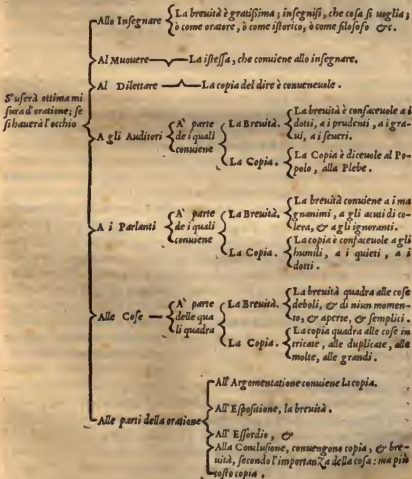 S'userà ottima mi
sura d'oratione; se
si hauerà l'occhio
Allo Insegnare
La breuità è gratissima; insegnisi, che cosa si uoglia;
ò come oratore, ò come istorico, ò come filosofo &c.
Al Muouere
La istessa, che conuiene allo insegnare.
Al Dilettare
La copia del dire è conueneuole.
A gli Auditori
A' parte
de i quali
conuiene
La Breuità.
La breuità è confaceuole a i
dotti, a i prudenti, a i gra-
ui, a i seueri.
La Copia.
La Copia è diceuole al Po-
polo, alla Plebe.
A i Parlanti
A' parte
de i quali
conuiene
La Breuità.
La breuità conuiene a i ma
gnanimi, a gli acuti di co-
lera, & a gli ignoranti.
La Copia.
La copia è confaceuole a gli
humili, a i quieti, a i
dotti.
Alle Cose
A' parte
delle qua
li quadra
La Breuità.
La breuità quadra alle cose
deboli, & di niun momen-
to, & aperte, & semplici.
La Copia.
La copia quadra alle cose in
tricate, alle duplicate, alle
molte, alle grandi.
Alle parti della oratione
All' Argomentatione conuiene la copia.
All' Espositione, la breuità.
All' Essordio, &
Alla Conclusione, conuengono copia, & bre-
uità, secondo l'importanza della cosa: ma più
tosto copia.